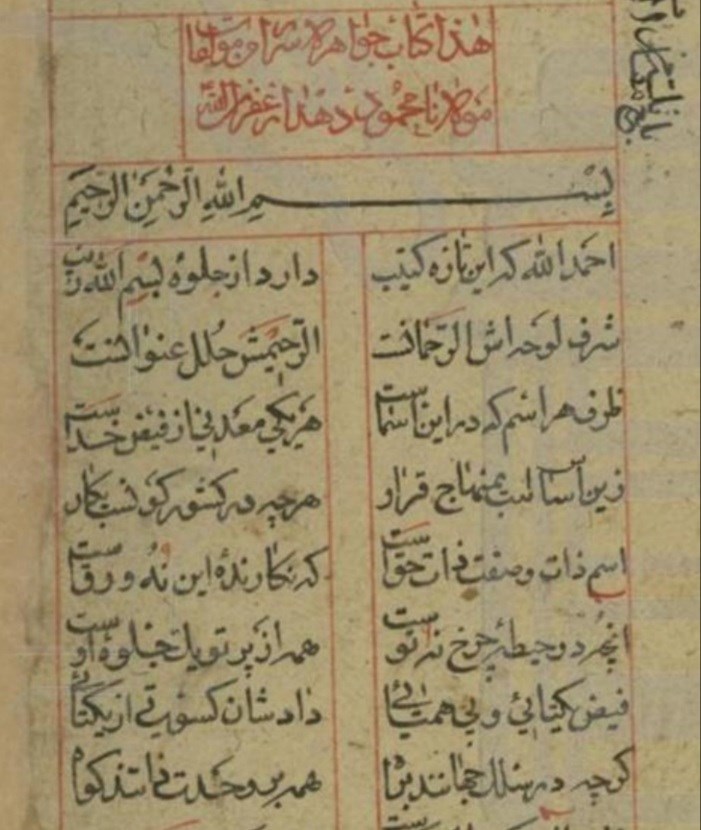 هذا کتاب جواهر الاسرار من مؤلفات
مولانا محمود دهدار غفر الله
بسم الله الرحمن الرحیم
احمد الله که این تازه کتیب
دارد از جلوهٔ بسم الله زیب
شرف لوحه اش الرحمانست
الرحیمش حلل عنوانست
ظرف هر اسم که در این اسماست
هر یکی معدنی از فیض خداست
زین اسما نسب منهاج قرار
هرچه در کشور کونست بکار
اسم ذات و صفت ذات حقوست
که نکارندهٔ این نه ورقست
انچه در حیطهٔ چرخ نه توست
همه از پرتو یک جلوهٔ اوست
فیض یکتائی و بی همتائی
داد شان کسوتی از یکتائی
کرچه در سلک جمانند برا
همه بر وحدت ذاتند کواه